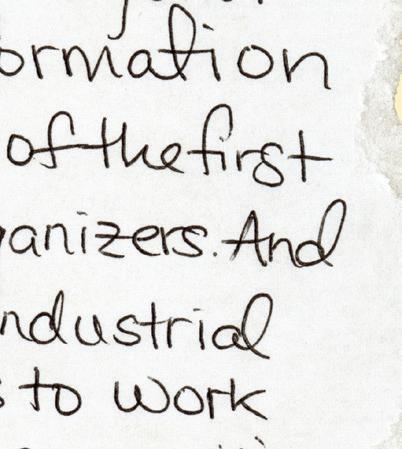 ormation
of the first
ganizers. And
ndustrial
s to work